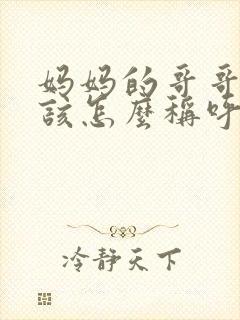 妈妈的哥哥
該怎麼稱呼
冷靜天下